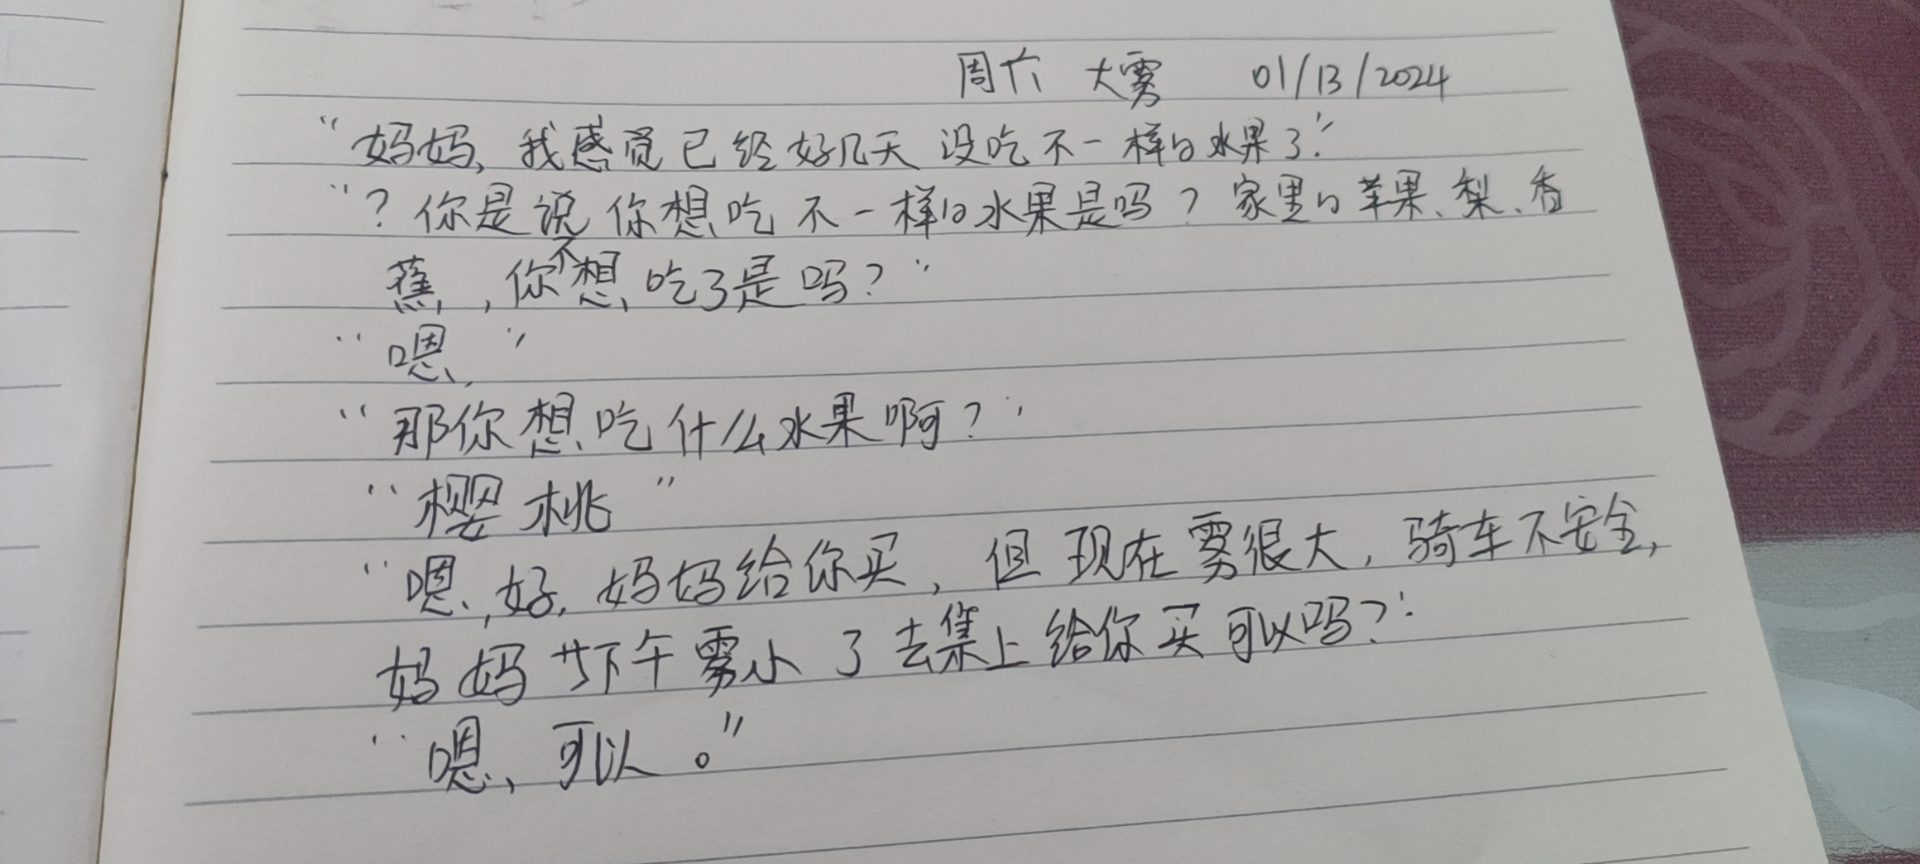 周六 大雾 01/13/2024
“妈妈,我感觉已经好几天没吃不一样的水果了.”
“?你是说你想吃不一样的水果是吗?家里的苹果、梨、香
蕉,,你不想吃了是吗?”
“嗯,”
“那你想吃什么水果啊?”
“樱桃”
“嗯,好,妈妈给你买,但现在雾很大,骑车不安全,
妈妈下午雾小了去集上给你买可以吗?”
“嗯,可以。”